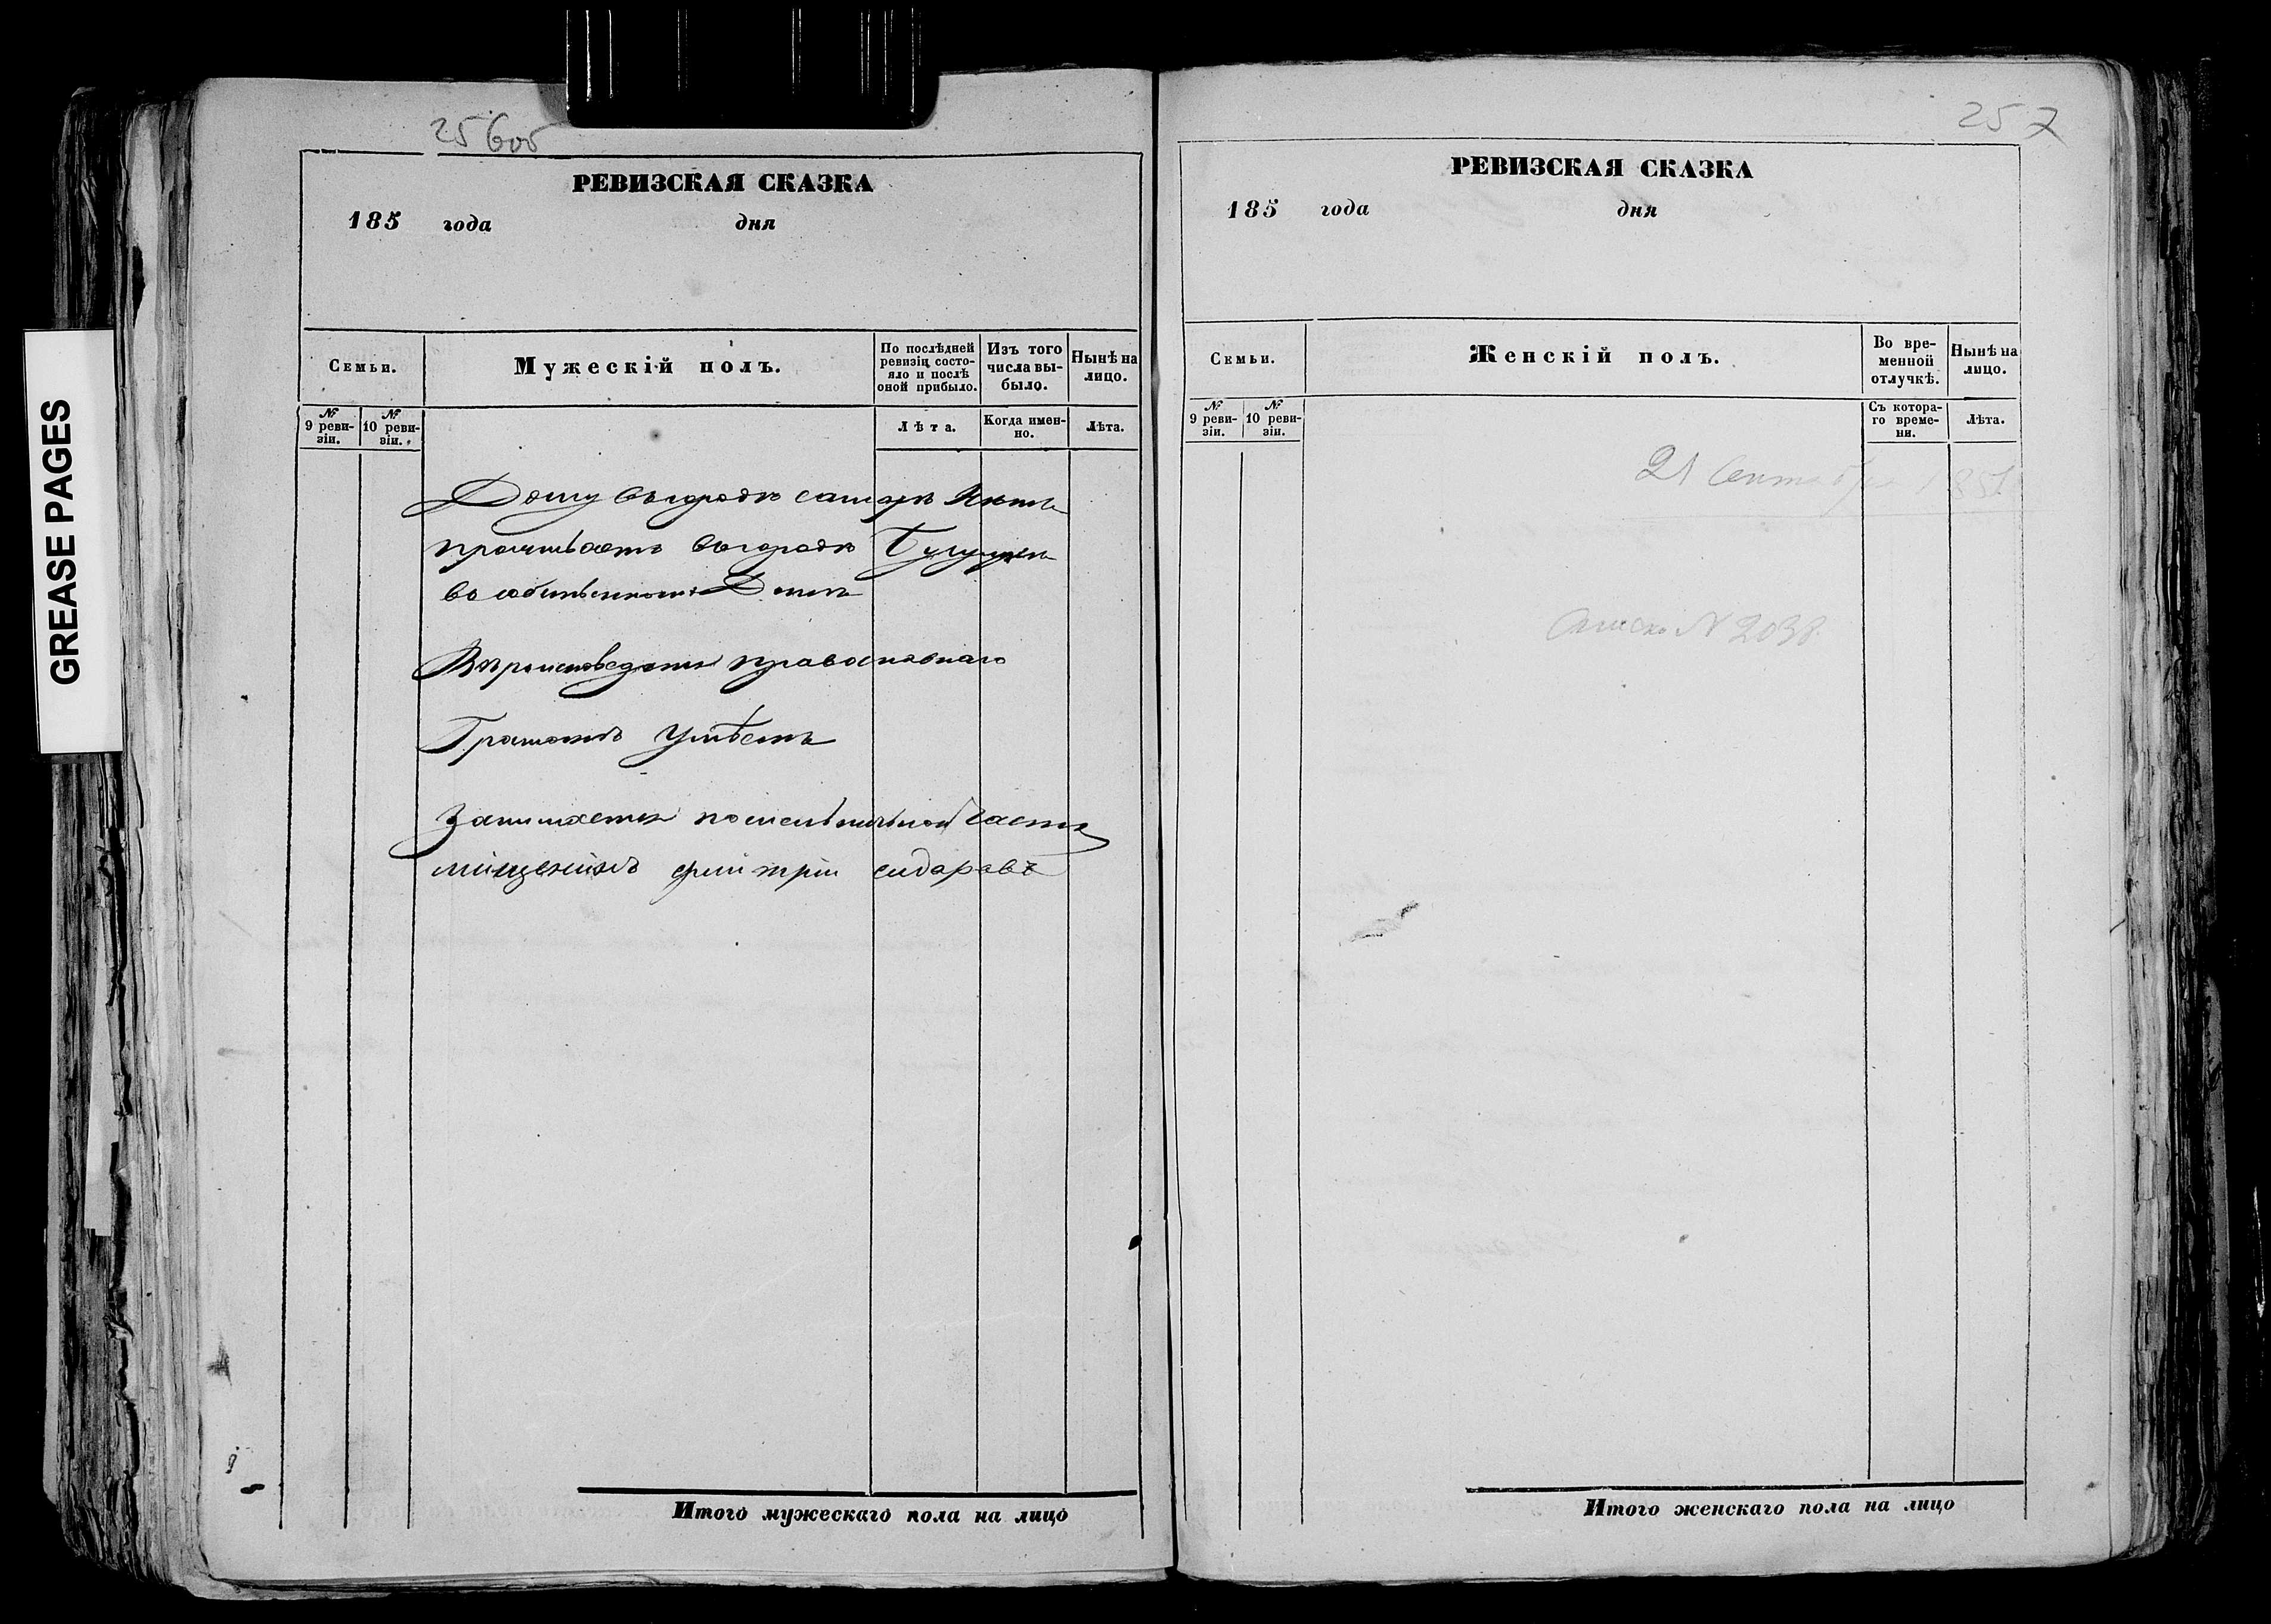 256об
РЕВИЗСКАЯ СКАЗКА
185 года дня
Семьи.
Мужескій полъ.
По послѣдней ревизіи состояло и послѣ оной прибыло.
Изъ того числа выбыло.
Нынѣ на лицо.
№ 9 ревизіи.
№ 10 ревизіи.
Лѣта.
Когда именно.
Лѣта.
Дому въ городѣ самарѣ Нѣтъ
проживаетъ въ городѣ
въ собственномъ Домѣ
Вѣроисповеданія православнаго
Грамотѣ Умѣетъ
Занимается по мельничьной Части
міщенінъ дмитріи сидаравъ
Итого мужескаго пола на лицо
GREASE PAGES
257
РЕВИЗСКАЯ СКАЗКА
185 года дня
Семьи.
Женскій полъ.
Во временной отлучкѣ.
Нынѣ на лицо.
№ 9 ревизіи.
№ 10 ревизіи.
Съ котораго времени.
Лѣта.
21 Сентября
№ 2038
Итого женскаго пола на лицо